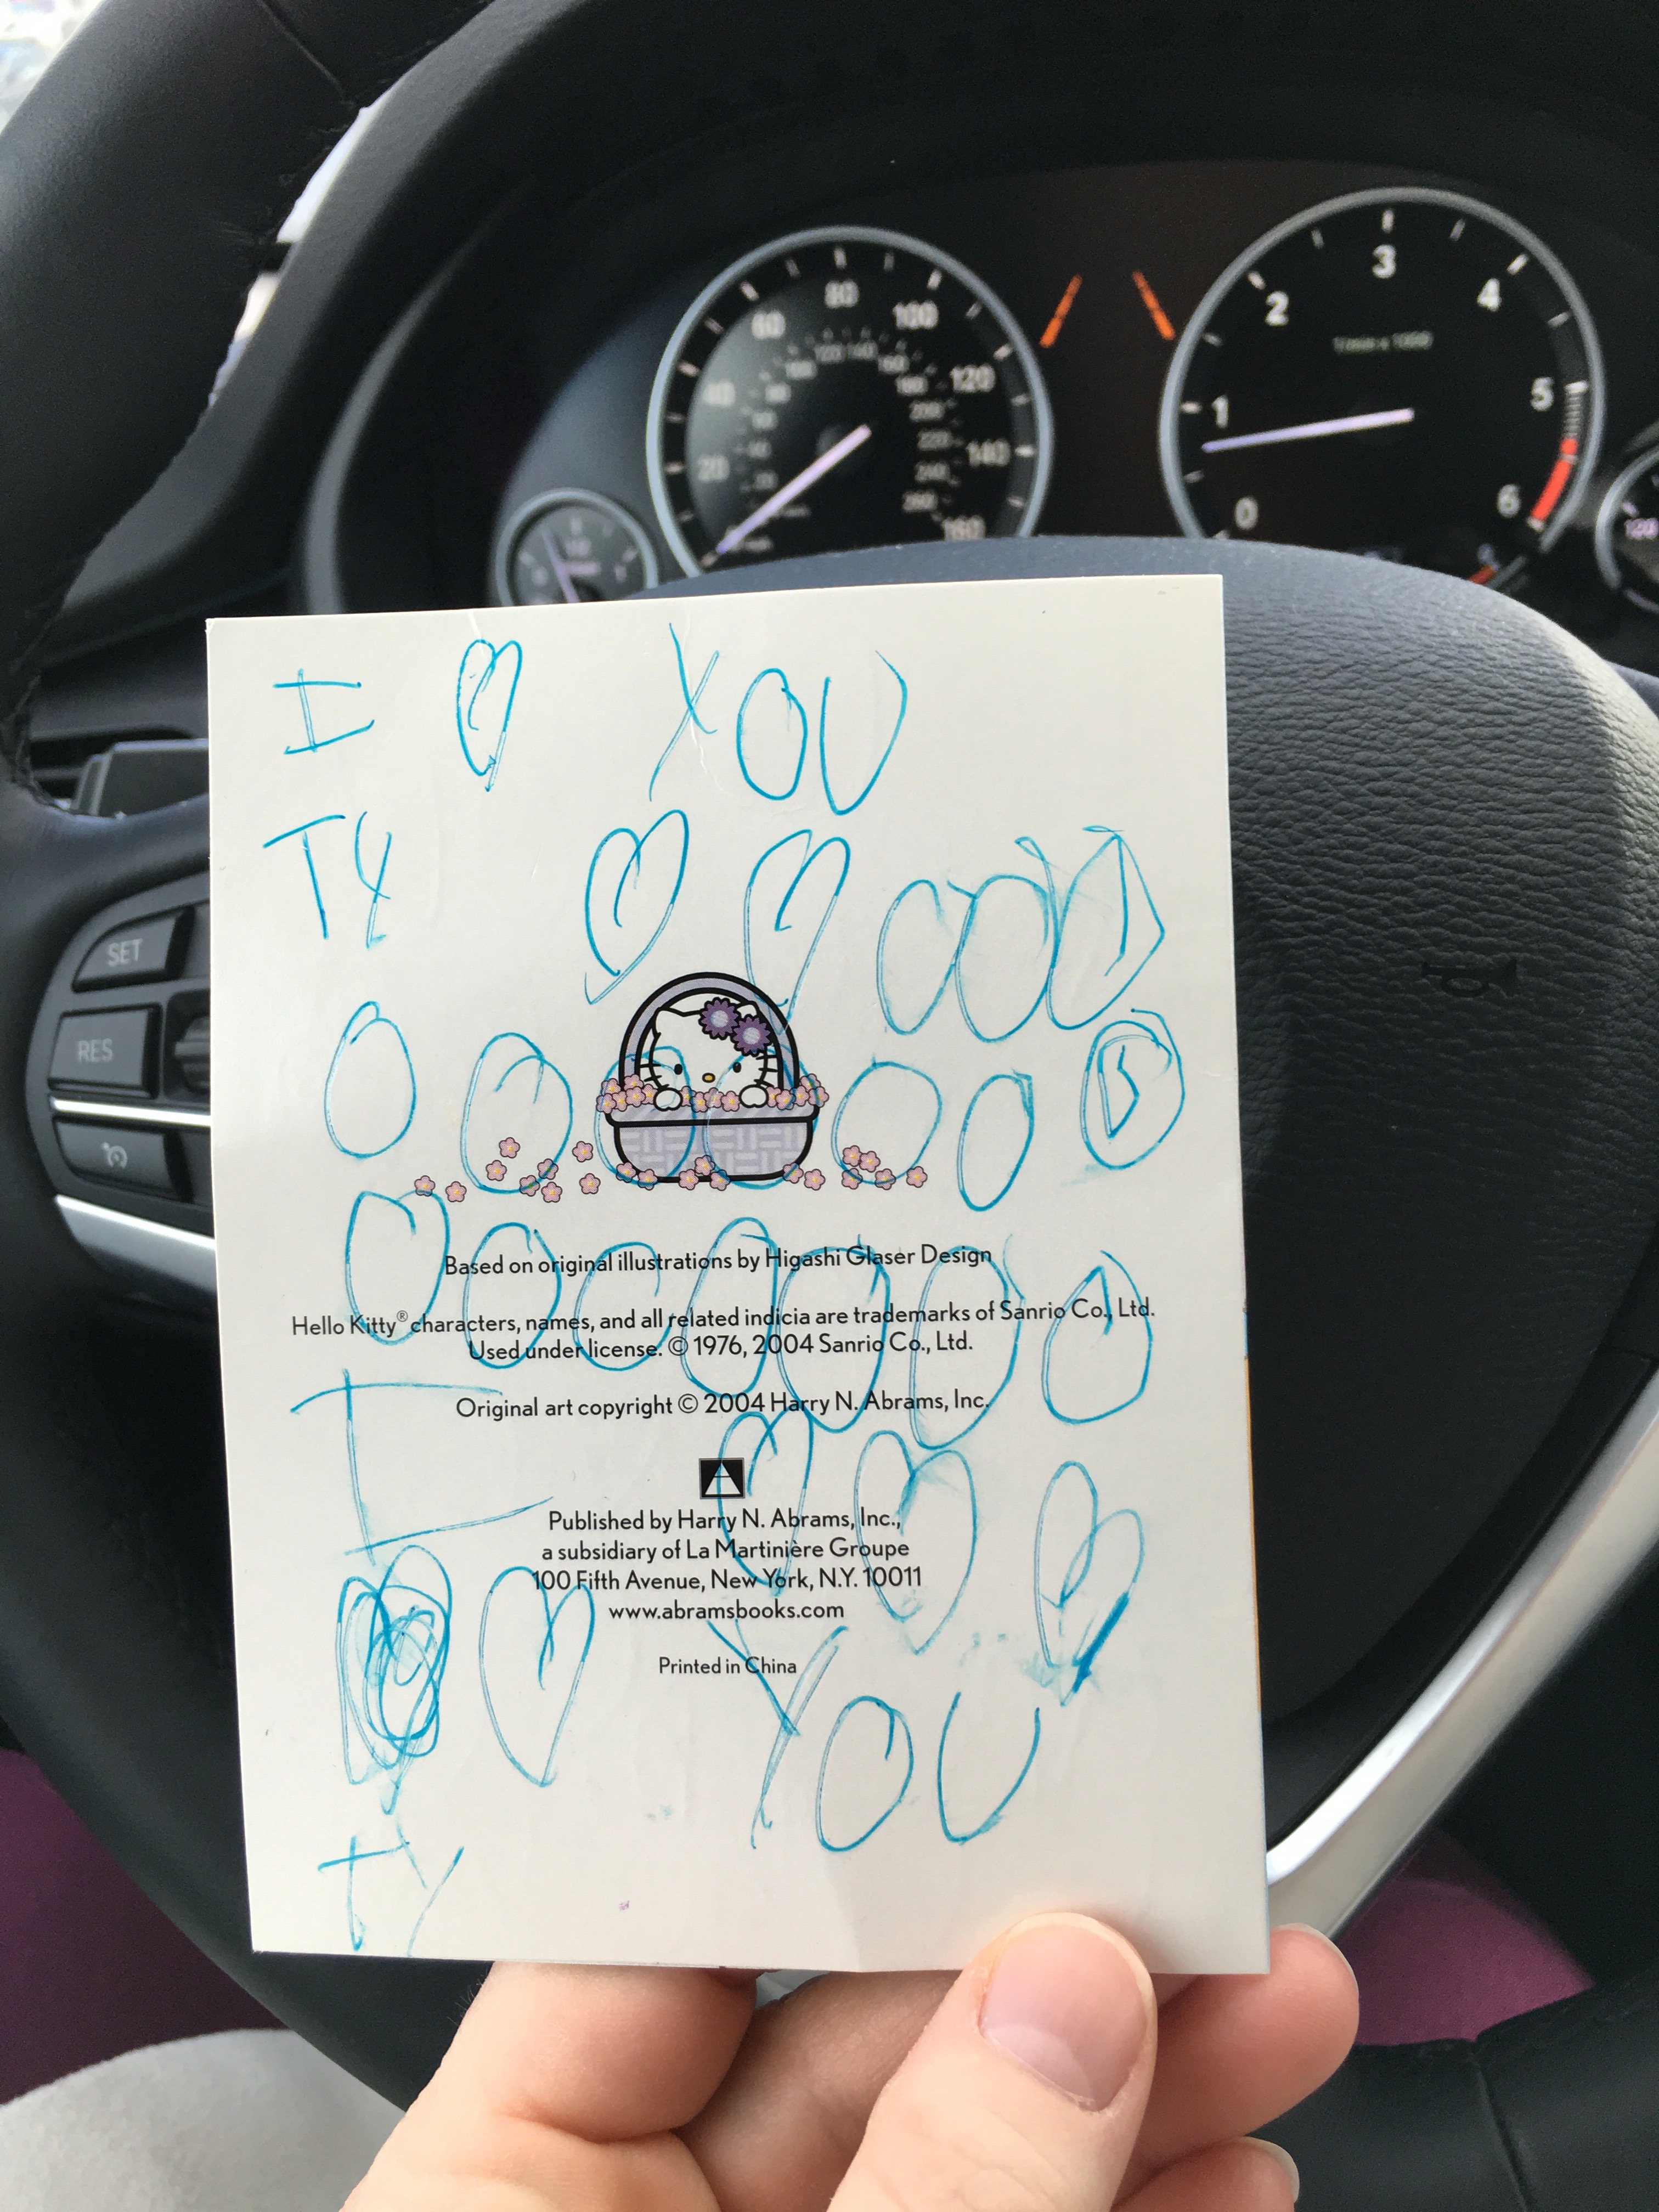 80
60
100
40
120
20
140
160
3
2
4
1
5
0
6
1/min x 1000
SET
RES
I ♡ YOU
TY ♡ ♡ OOO
O O O O O O O
Based on original illustrations by Higashi Glaser Design
Hello Kitty® characters, names, and all related indicia are trademarks of Sanrio Co., Ltd.
Used under license. © 1976, 2004 Sanrio Co., Ltd.
Original art copyright © 2004 Harry N. Abrams, Inc.
O O O O O O O
I ♡ ♡ ♡
Published by Harry N. Abrams, Inc.,
a subsidiary of La Martinière Groupe
100 Fifth Avenue, New York, N.Y. 10011
www.abramsbooks.com
Printed in China
♡ YOU
TY